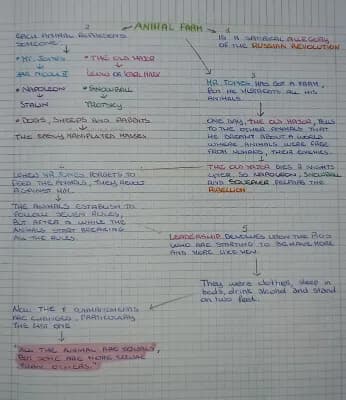 ANIMAL FARM
2
EACH ANIMAL REPRESENTS
SOMEONE
• MR. JONES
TSAR NICOLA II
• THE OLD MAJOR
LENIN OR KARL MARX
• NAPOLEON
STALIN
• SNOWBALL
TROTSKY
• DOGS, SHEEPS AND
THE EASILY MANIPULATED MASSES
1
IS A SATIRICAL ALLEGORY
OF THE RUSSIAN REVOLUTION
3
MR. JONES HAS GOT A FARM,
BUT HE MISTREATS ALL HIS
ANIMALS.
ONE DAY, THE OLD MAJOR, TELLS
TO THE OTHER ANIMALS THAT
HE DREAMT ABOUT A WORLD
WHERE ANIMALS WERE FREE
FROM HUMANS, THEIR ENEMIES.
THE OLD MAJOR DIES 3 NIGHTS
LATER, SO NAPOLEON, SNOWBALL
AND SQUEALER PREPARE THE
REBELLION
WHEN MR. JONES FORGETS TO
FEED THE ANIMALS, THEY REVOLT
AGAINST HIM.
THE ANIMALS ESTABLISH TO
FOLLOW SEVEN RULES,
BUT AFTER A WHILE THE
ANIMALS START BREAKING
ALL THE RULES.
5
LEADERSHIP DEVOLVES UPON THE PIGS
WHO ARE STARTING TO BEHAVE MORE
AND MORE LIKE MEN.
They wore clothes, sleep in
beds, drink alcohol and stand
on two feet.
NOW THE 7 COMMANDMENTS
ARE CHANGED, PARTICULARLY
THE LAST ONE
"ALL THE ANIMAL ARE EQUALS,
BUT SOME ARE MORE EQUAL
THAN OTHERS."